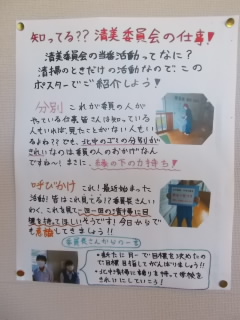 知ってる?? 清美委員会の仕事!
清美委員会の当番活動ってなに?
清掃のときだけの活動なので、この
ポスターでご紹介しよう!
分別 これが委員の人が
やっている仕事 皆さんは知っている
人もいれば、見たことがない人もい
るよね?? でも、北中のゴミの分別が
きれいなのは委員の人のおかげなん
ですね〜! まさに、縁の下の力持ち
呼びかけ これ! 最近始まった
活動! 皆はこれ見てる?? 委員長さんい
わく、これを見て一週一回の清掃に目
標を持ってほしいそうです! 今日からで
も意識してきましょう!!
委員長さんから一言
・新たに月一で目標を決めたの
で目標目指してがんばりましょう!!
・北中清掃に誇りを持って学校を
きれいにしていこう!